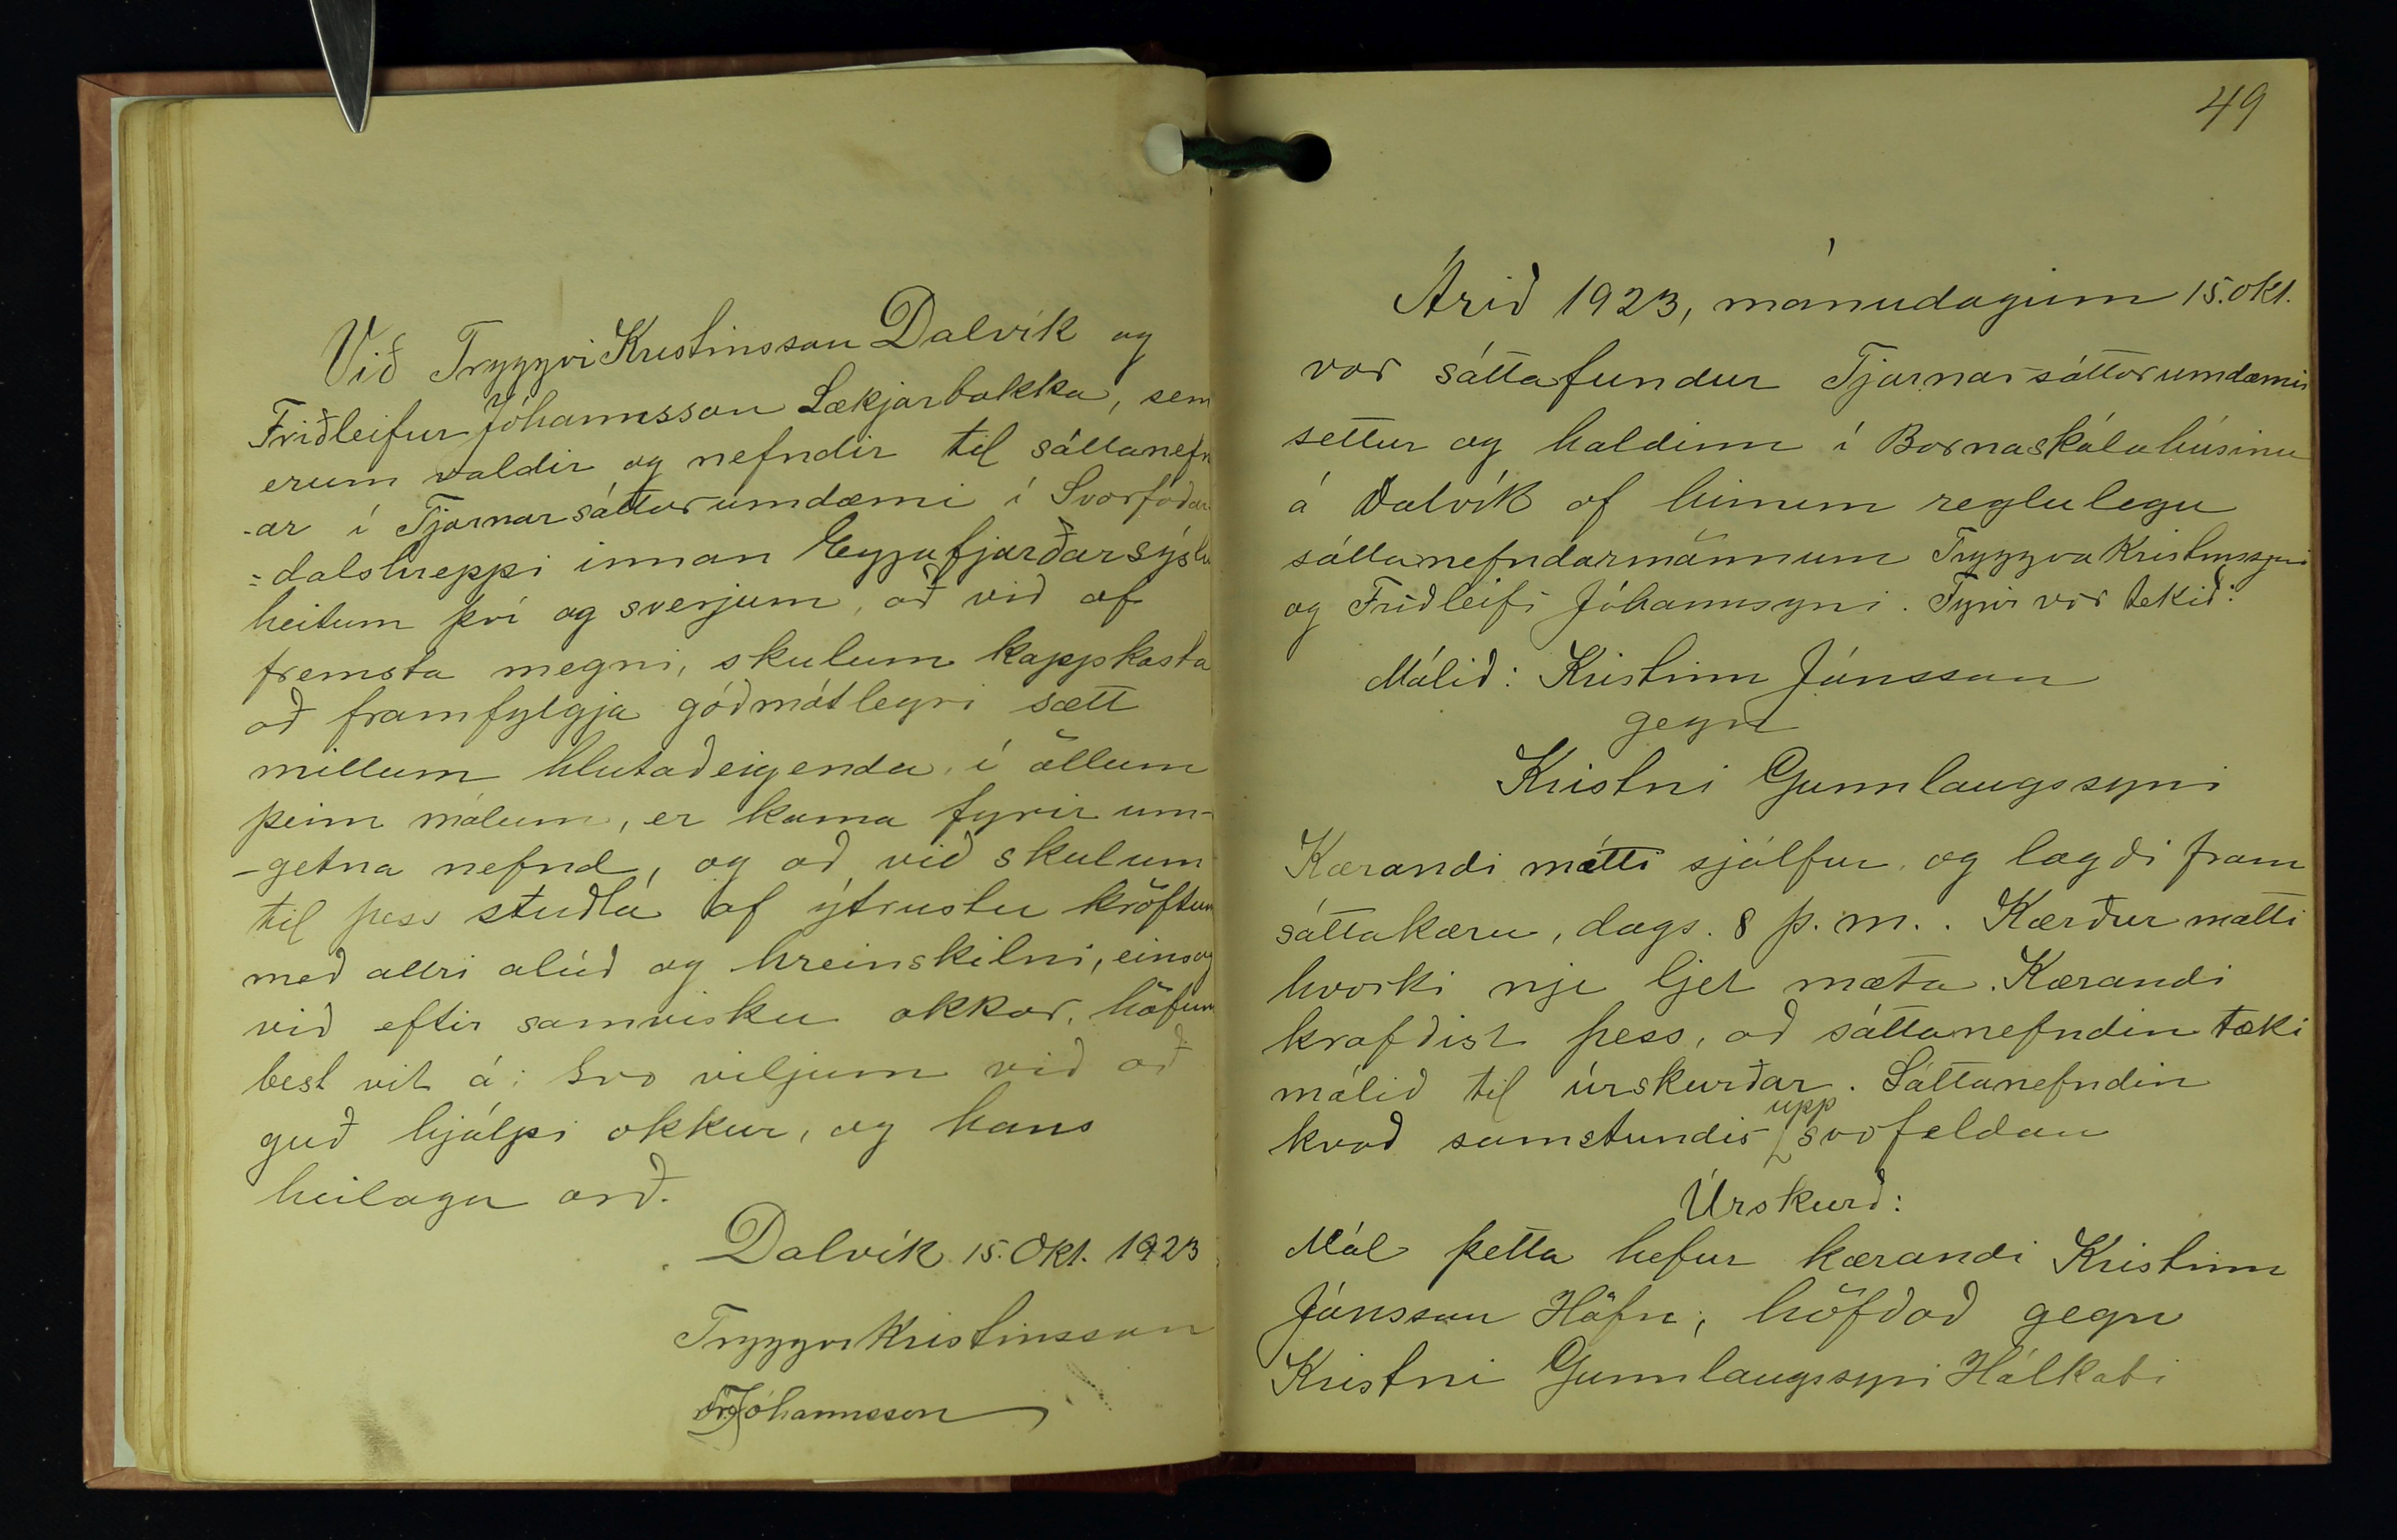 Við Tryggvi Kristinsson Dalvík og
Friðleifur Jóhannsson Lækjarbakka, sem
erum valdir og nefndir til sáttanefn
-ar í Tjarnarsáttarumdæmi í Svarfaðar
=dalshreppi innan Eyjafjarðarsýslu
heitum því og sverjum, að við af
fremsta megni, skulum kappkosta
að framfylgja góðmótlegri sætt
millum hlutaðeigenda, í öllum
þeim málum, er koma fyrir um-
-getna nefnd, og að við skulum
til þess stuðla af ýtrustu kröftum
með allri alúð og hreinskilni, eins og
við eftir samvisku okkar, höfum
best vit á; svo viljum við að
guð hjálpi okkur, og hans
heilaga orð.
Dalvík 15. Okt. 1923
Tryggvi Kristinsson
Fr Jóhannsson
49
Árið 1923, mánudaginn 15. okt.
var sáttafundur Tjarnar-sáttarumdæmis
settur og haldinn í Barnaskólahúsinu
á Dalvík af hinum reglulegu
sáttanefndarmönnum Tryggva Kristinssyni
og Friðleifi Jóhannsyni. Fyrir var tekið:
Málið: Kristinn Jónsson
gegn
Kristni Gunnlaugssyni
Kærandi mætti sjálfur, og lagði fram
sáttakæru, dags. 8 þ. m.. Kærður mætti
hvorki nje ljet mæta. Kærandi
krafðist þess, að sáttanefndin tæki
málið til úrskurðar. Sáttanefndin
kvað samstundis upp svofeldan
Úrskurð:
Mál þetta hefur kærandi Kristinn
Jónsson Höfn, höfðað gegn
Kristni Gunnlaugssyni Hálkoti